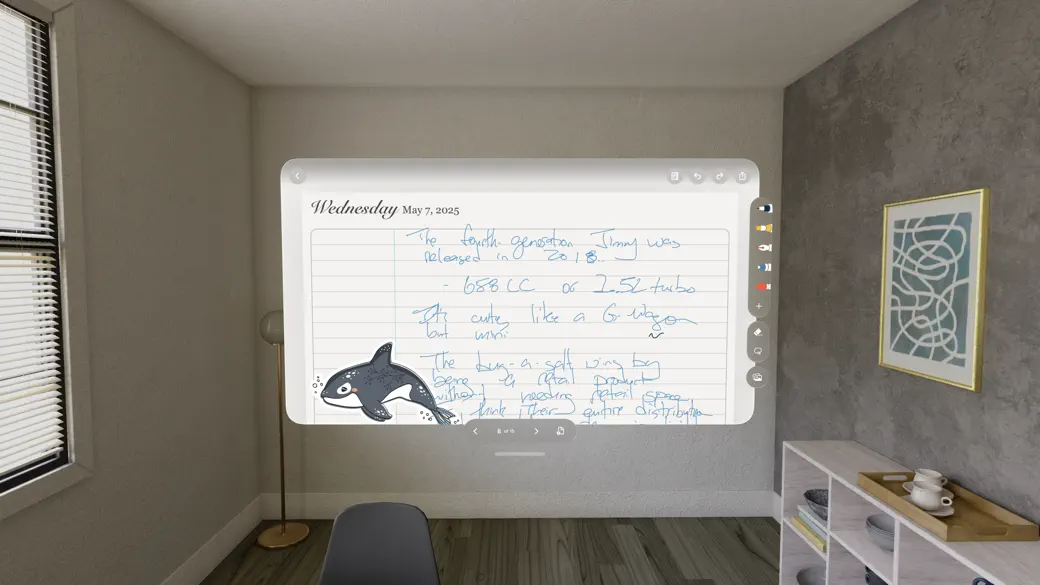 Wednesday May 7, 2025
The fourth-generation Jimny was
released in 2018.
- 658 CC or 1.5L turbo
It's cute, like a G-wagon
but mini
The
being a retail product
without needing retail space
think their entire distribution